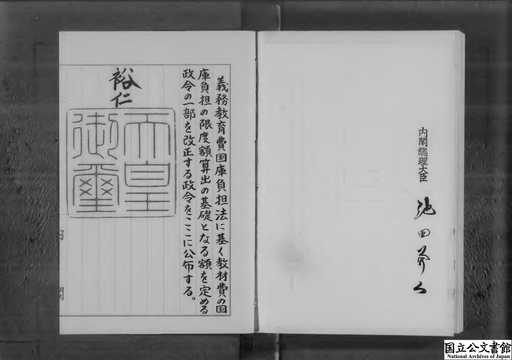 内閣総理大臣
池田勇人
義務教育費国庫負担法に基く教材費の国
庫負担の限度額算出の基礎となる額を定める
政令の一部を改正する政令をここに公布する。
裕仁
天皇
御璽
内閣
国立公文書館
National Archives of Japan